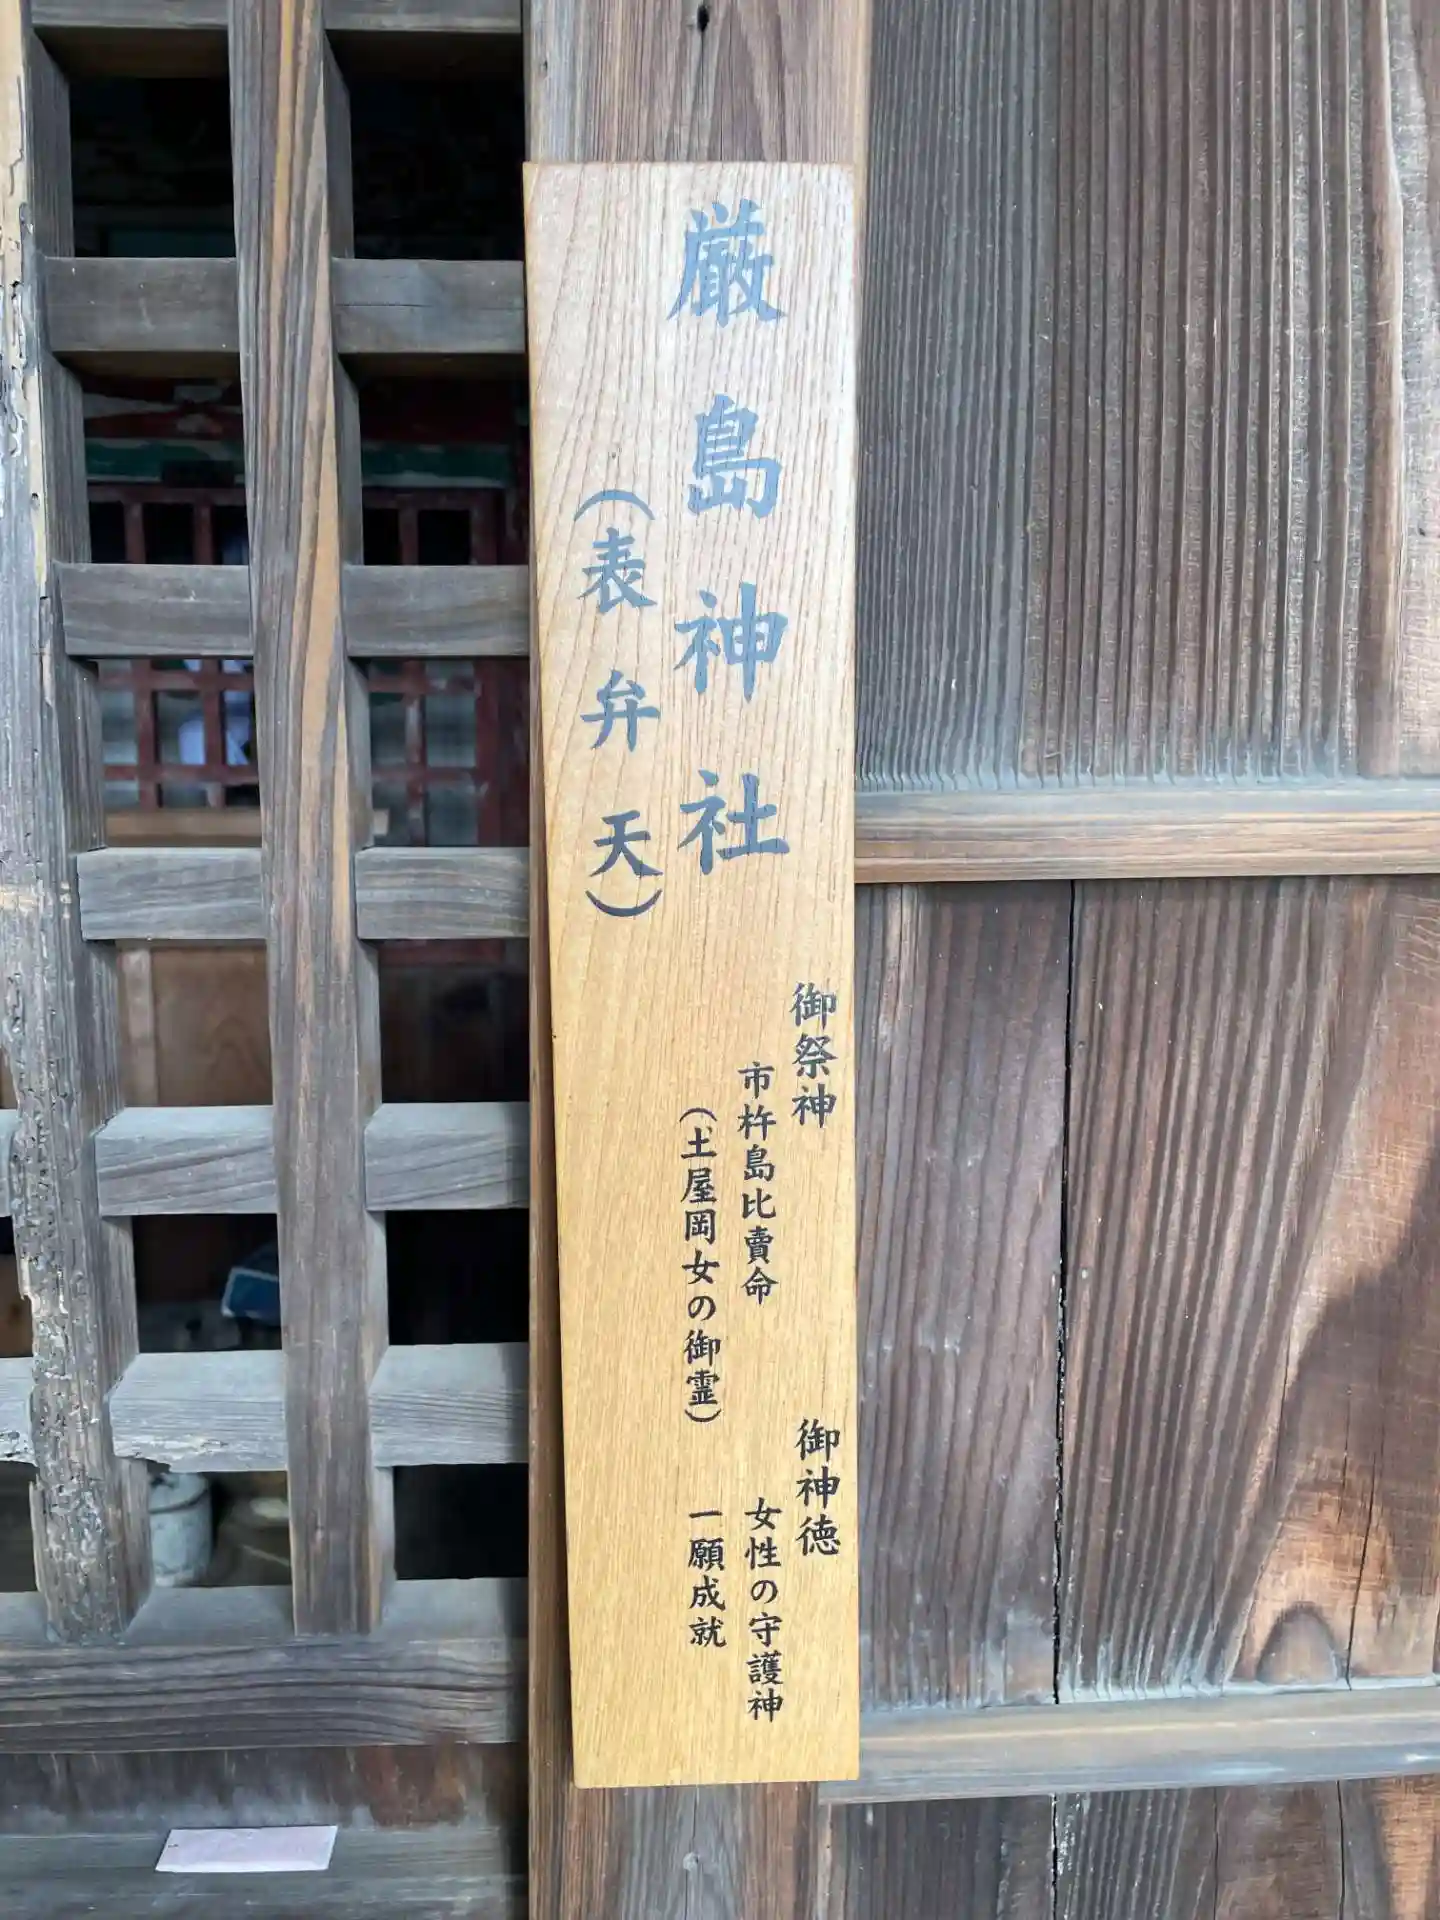 厳島神社
（表弁天）
御祭神
市杵島比賣命
（土屋岡女の御霊）
御神徳
女性の守護神
一願成就